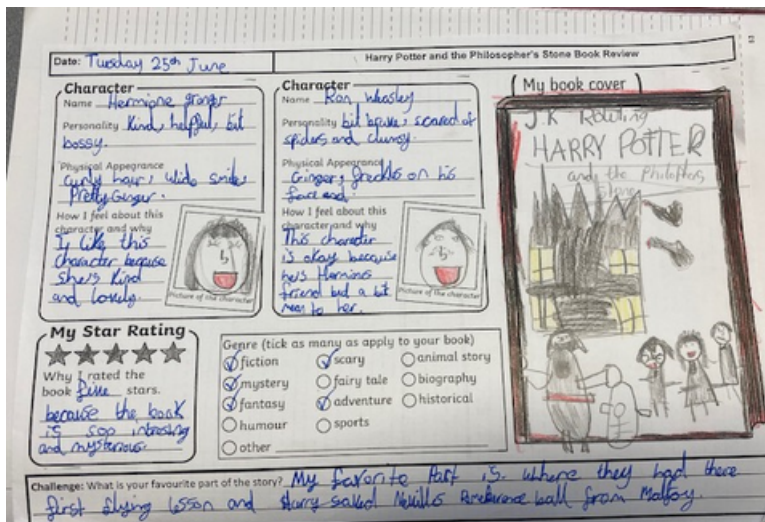 Date: Tuesday 25th June
Harry Potter and the Philosopher's Stone Book Review
Character
Name Hermione granger
Personality Kind, helpful, bit
bossy.
Physical Appearance
Curly hair, Wide smile,
Pretty Ginger.
How I feel about this
character and why
I like this
character because
she's Kind
and Lovely.
Picture of the character
Character
Name Ron Weasley
Personality bit brave, scared of
spiders and clumsy.
Physical Appearance
Ginger, freckles on his
face and.
How I feel about this
character and why
This character
is okay because
he's Hermines
friend but a bit
mean to her.
Picture of the character
My book cover
JK Rowling
HARRY POTTER
and the Philophers
Stone
My Star Rating
Why I rated the
book five stars.
because the book
is soo intresting
and mysterious.
Genre (tick as many as apply to your book)
fiction
scary
animal story
mystery
fairy tale
biography
fantasy
adventure
historical
humour
sports
other
Challenge: What is your favourite part of the story? My favorite Part is where they had there
first flying lesson and Harry saved Nevills ball from Malfoy.